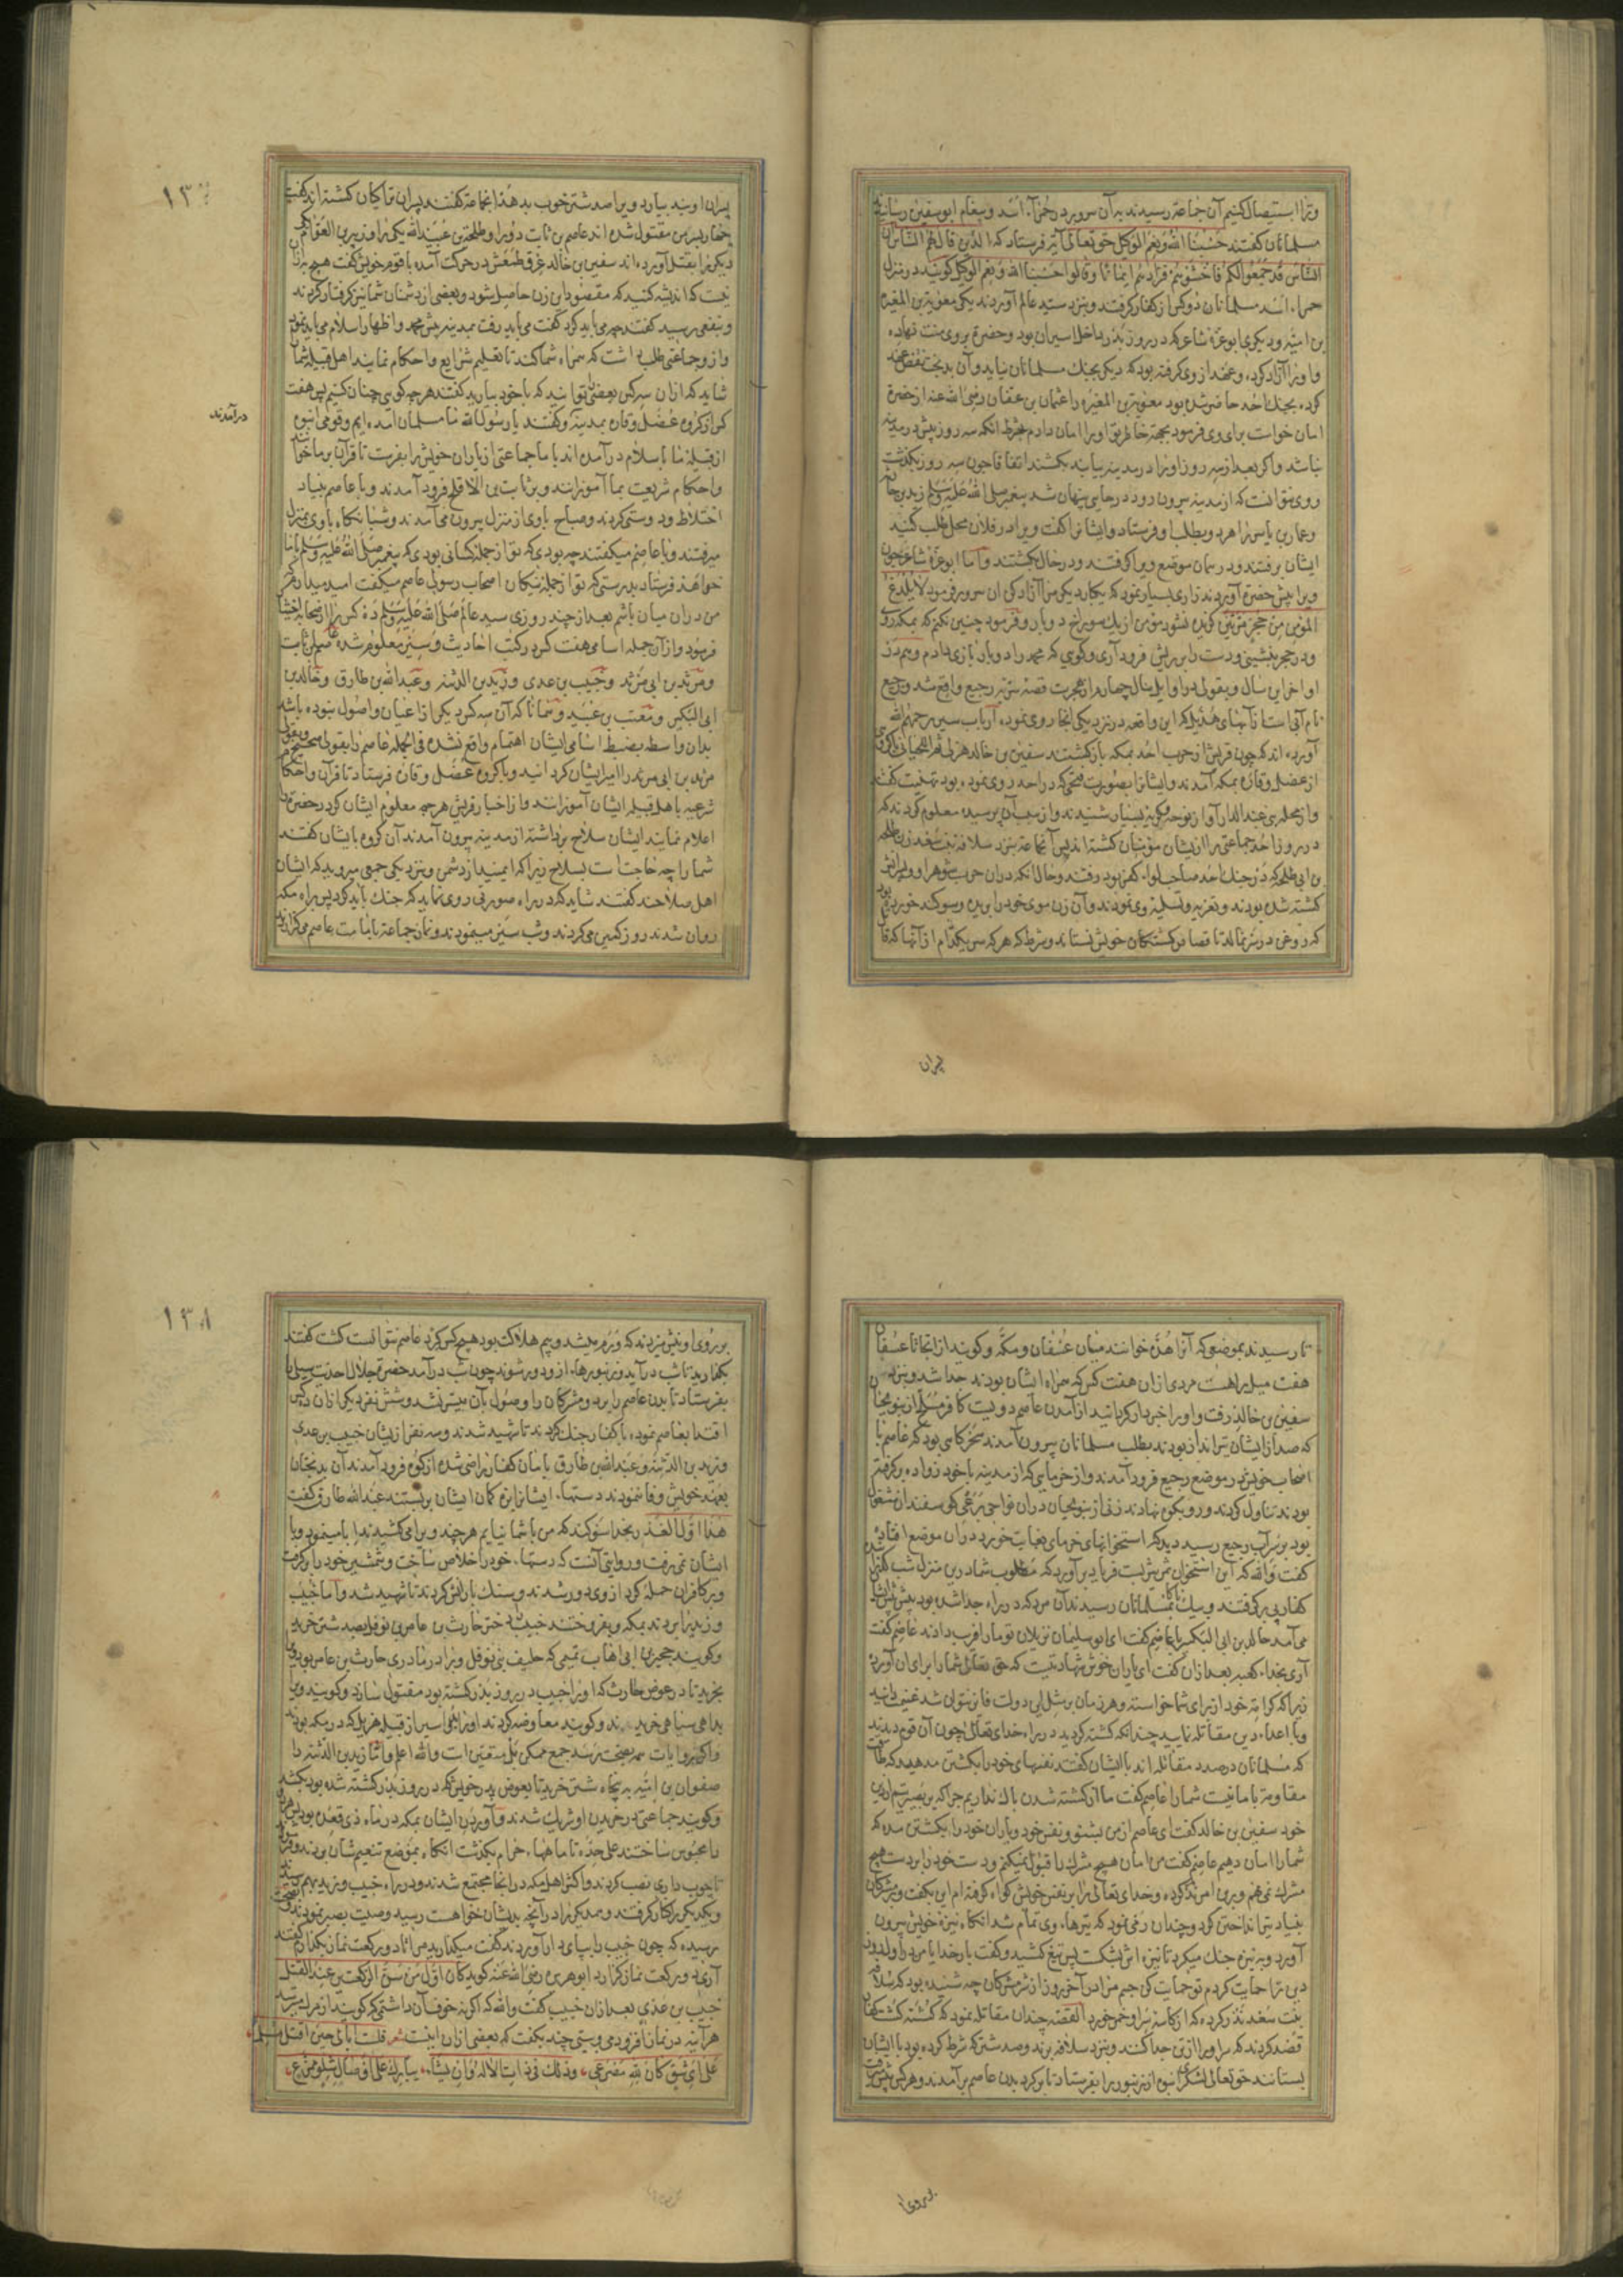 وترا استیصال کنیم آن جماعة رسیدند به آن سرور در حمرآء اسد و پیغام ابوسفین رسانید
مسلمانان گفتند حسبنا الله ونعم الوکیل حق تعالی آیة فرستاد که الذین قال لهم الناس ان
الناس قد جمعوا لکم فاخشوهم فزادهم ایمانا وقالوا حسبنا الله ونعم الوکیل گویند در منزل
حمراء اسد مسلمانان دو کس از کفار گرفتند و بنزد سید عالم آوردند یکی معویة بن المغیره
بن امیّه و دیگری ابو عزه شاعر که در روز بدر داخل اسیران بود و حضرة بروی منت نهاده
و او را آزاد کرده و عهد از وی گرفته بود که دیگر بجنک مسلمانان نیاید و آن بدبخت نقض عهد
کرده بجنک احد حاضر شده بود معویة بن المغیره را عثمان بن عفان رضی الله عنه از حضرة
امان خواست برای وی فرمود بجهة خاطر تو او را امان دادم بشرط انکه سه روز بیش در مدینه
نباشد و اکر بعد از سه روز او را در مدینه بیابند بکشند اتفاقا چون سه روز بگذشت
وی نتوانست که از مدینه بیرون رود در جایی پنهان شد پیغمبر صلی الله علیه وسلم زید بن حارثه
و عمار بن یاسر را هر دو بطلب او فرستاد و ایشانرا گفت ویرا در فلان محل طلب کنید
ایشان برفتند و در همان موضع ویرا گرفتند و در حال بکشتند و اما ابو عزه شاعر چون
ویرا پیش حضرة آوردند زاری بسیار نمود که یکبار دیگر مرا آزاد کن ان سرور فرمود لا یلدغ
المؤمن من جحر مرتین گزیده نشود مؤمن از یک سوراخ دو بار و فرمود چنین نکنم که بمکه روی
و در حجر بنشینی و دست را بریش فرود آری و کویی که محمد را دو بار بازی دادم و هم در
اواخر این سال و بقولی در اوایل سال چهارم از هجرت قصه سریه رجیع واقع شد و رجیع
نام آبی است از آبهای هذیل که این واقعه در نزدیکی انجا روی نموده ارباب سیر رحمهم الله
آورده اند که چون قریش از حرب احد بمکه بازگشتند سفین بن خالد هذلی ثم اللحیانی با گروهی
از عضل و قاره بمکه آمدند و ایشانرا بصورت فتحی که در احد روی نموده بود تهنیت گفتند
و از محله بنی عبد الدار آواز نوحه و گریه بسیار شنیدند و از سبب آن پرسیده معلوم کردند که
در روز احد جماعتی را از ایشان مؤمنان کشته اند پس آنجماعة بنزد سلافه بنت سعد زن طلحه
بن ابی طلحه که در جنک احد صاحب لواء کفر بود رفتند و حال انکه دران حرب شوهر او و پسرانش
کشته شده بودند و تعزیه و تسلیة وی نمودند و آن زن موی خود را بریده و سوگند خورده بود
که روغن در سر نمالد تا قصاص کشتگان خویش نستاند و شرط که هر که سر یکدام از آنها که قاتل
پسران
۱۳
پسران اویند بیارد ویرا صد شتر خوب بدهد انجماعة گفتند پسران ترا کیان کشته اند گفت
چهار پسر من مقتول شده اند عاصم بن ثابت دو را و طلحة بن عبید الله یکی را و زبیر بن العوام
دیگریرا بقتل آورده اند سفین بن خالد عرق طمعش در حرکت آمده با قوم خویش گفت هیچ به ازان
نیست که اندیشه کنید که مقصود این زن حاصل شود و بعضی از دشمنان شما نیز گرفتار گردند
و بنفعی برسید گفتند چه می باید کرد گفت می باید رفت بمدینه پیش محمد و اظهار اسلام می باید نمود
و از وجماعتی طلب داشت که همراه شما کند تا تعلیم شرایع و احکام نمایند اهل قبیله شما را
شاید که ازان سه کس بعضی توانید که با خود بیارید گفتند هر چه کویی چنان کنیم پس هفت
کس از گروه عضل و قاره بمدینه و گفتند یا رسول الله ما مسلمان آمده ایم و قومی انبوه
درآمدند
از قبیله ما باسلام درآمده اند با ما جماعتی از یاران خویش را بفرست تا قرآن بر ما خوانند
و احکام شریعت بما آموزانند و بر ثابت بن الاقلح فرود آمدند و با عاصم بنیاد
اختلاط و دوستی کردند و صباح با وی از منزل بیرون می آمدند و شبانکاه با وی بمنزل
میرفتند و با عاصم میگفتند چه بودی که تو از جمله کسانی بودی که پیغمبر صلی الله علیه وسلم با ما
خواهد فرستاد بدرستی که تو از جمله نیکان اصحاب رسولی عاصم میگفت امید میدارم که
من دران میان باشم بعد از چند روزی سید عالم صلی الله علیه وسلم ده کس را از صحابه اختیار
فرمود و از آن جمله اسامی هفت کس در کتب احادیث و سیر معلوم شده عاصم بن ثابت
و مرثد بن ابی مرثد و خبیب بن عدی و زید بن الدثنه و عبد الله بن طارق و خالد بن
ابی البکیر و معتب بن عبید و همانا که آن سه کس دیگر از اعیان و اصول نبوده باشند
بدان واسطه بضبط اسامی ایشان اهتمام واقع نشده فی الجمله عاصم را بقولی صحیح و بقولی
مرثد بن ابی مرثد را امیر ایشان گردانید و با گروه عضل و قاره فرستاد تا قرآن و احکام
شرعیه باهل قبیله ایشان آموزانند و از اخبار قریش هر چه معلوم ایشان گردد حضرة را
اعلام نمایند ایشان سلاح برداشته از مدینه بیرون آمدند آن گروه بایشان گفتند
شما را چه حاجت است بسلاح زیرا که ایمنید از دشمن و بنزدیکی جمعی میروید که ایشان
اهل صلاحند گفتند شاید که در راه صورتی روی نماید که جنک باید کرد پس براه مکه
روان شدند روز کمین می کردند و شب سیر مینمودند و نماز جماعة بامامت عاصم می گزاردند
تا رسیدند بموضعی که آنرا هدّه خوانند میان عسفان و مکه و گویند از انجا تا عسفان
هفت میل راهست مردی ازان هفت کس که همراه ایشان بودند جدا شد و بنزد
سفین بن خالد رفت و او را خبردار گردانید از آمدن عاصم دویست کافر مسلح از بنو لحیان
که صد از ایشان تیرانداز بودند بطلب مسلمانان بیرون آمدند سحرگاهی بود که عاصم با
اصحاب خویش در موضع رجیع فرود آمدند و از خرمایی که از مدینه با خود زواده برگرفته
بودند تناول کردند و رو بکوه نهادند زنی از بنو لحیان دران نواحی برعی گوسفندان مشغول
بود بر سر آب رجیع رسید دید که استخوانهای خرمای بغایت خورد دران موضع افتاده
گفت والله که این استخوان خرمای یثربست فریاد برآورد که مطلوب شما درین منزل شب
کفار پی برگرفتند و بمسلمانان رسیدند آن مرد که در راه جدا شده بود پیش پیش ایشان
می آمد خالد بن ابی البکیر با عاصم گفت ای ابو سلیمان نزیلان تو ما را فریب دادند عاصم گفت
آری بخدای کعبه بعد ازان گفت ای یاران خوش شهادتیست که حق تعالی شما را برای ان آورده
زیرا که کرامة خود از برای شما خواسته و هر زمان برمثل این دولت فایز نتوان شد غنیمت دانید
و با اعداء دین مقاتله نمایید چندانکه کشته کردید در راه خدای تعالی چون آن قوم دیدند
که مسلمانان در صدد مقاتله اند با ایشان گفتند نفسهای خود را بکشتن مدهید که طاقت
مقاومة با ما نیست شما را عاصم گفت ما از کشته شدن باک نداریم چرا که بر بصیرتیم از دین
خود سفین بن خالد گفت ای عاصم از من بشنو و نفس خود و یاران خود را بکشتن مده که
شما را امان دهیم عاصم گفت من امان هیچ مشرک را قبول نمیکنم و دست خود را بر دست هیچ
مشرک نمی نهم و برین امر نذر کرده و خدای تعالی را بر نفس خویش گواه گرفته ام این بگفت و بر مشرکان
بنیاد تیر انداختن کرد و چندان رمی نمود که تیرهاء وی تمام شد انکاه نیزه خویش بیرون
آورد و به نیزه جنک میکرد تا نیزه اش بشکست پس تیغ کشید و گفت بار خدایا من در اول روز
دین ترا حمایت کردم تو حمایت کن جسم مرا در آخر روز از شر مشرکان چه شنیده بود که سلافه
بنت سعد نذر کرده که از کاسه سر او خمر خورد القصه چندان مقاتله نمود که کشته کشت کفار
قصد کردند که سر او را از تن جدا کنند و بنزد سلافه برند و صد شتر که شرط کرده بود با ایشان
بستانند حق تعالی لشکر انبوه از زنبور را بفرستاد تا بر گرد بدن عاصم برآمدند و هر کس پیش میرفت
بروی او
۱۳۸
بر روی او نیش میزدند که ورم میشد و بیم هلاکت بود هیچ کس گرد عاصم نتوانست کشت گفتند
بگذارید تا شب درآید و زنبورها از و دور شوند چون شب درآمد حضرة جلال احدیت سیلی را
بفرستاد تا بدن عاصم را ببرد و مشرکان را وصول بآن میسر نشد و شش نفر دیگر ازان ده کس
اقتدا بعاصم نموده با کفار جنک کردند تا شهید شدند و سه نفر از ایشان خبیب بن عدی
و زید بن الدثنه و عبد الله بن طارق بامان کفار راضی شده از کوه فرود آمدند آن بدبختان
بعهد خویش وفا ننمودند دستهاء ایشانرا بزه کمان ایشان بربستند عبد الله طارق گفت
هذا اول الغدر بخدا سوگند که من با شما نیایم هر چند ویرا می کشیدند ابا مینمود و با
ایشان نمی رفت و روایتی آنست که دستهاء خود را خلاص ساخت و شمشیر خود را برگرفت
و بر کافران حمله کرد از وی دور شدند و سنک باران کردند تا شهید شد و اما خبیب
و زید را بردند بمکه و بفروختند خبیب را دختر حارث بن عامر بن نوفل بصد شتر خرید
و گویند حجیر بن ابی اهاب تمیمی که حلیف بنی نوفل و برادر مادری حارث بن عامر بود ویرا
بخرید تا در عوض حارث که او را خبیب در روز بدر کشته بود مقتول سازد و گویند ویرا
بداهی سیاهی خریدند و گویند معاوضه کردند او را باسیر از قبیله هذیل که در مکه بودند
و اکر روایات همه بصحت رسد جمع ممکن بل متعین است والله اعلم و اما زید بن الدثنه را
صفوان بن امیّه به پنجاه شتر خرید تا بعوض پدر خویش که در روز بدر کشته شده بود بکشد
و گویند جماعتی در خریدن او شریک شدند و آوردن ایشان بمکه در ماه ذی قعده بود پس هر دو
را محبوس ساختند علی حده تا ماههاء حرام بگذشت انکاه بموضع تنعیم شان بردند
تا چوب داری نصب کردند و اکثر اهل مکه در انجا مجتمع شدند و در راه خبیب و زید بهم رسیدند
و یکدیگر را کنار گرفتند و همدیگر را در آنچه بدیشان خواهد رسید وصیت بصبر نمودند
رسیده که چون خبیب را بپای دار آوردند گفت میگذارید مرا تا دو رکعت نماز بگذارم گفتند
آری دو رکعت نماز گزارد ابوهریره رضی الله عنه گوید کان اول من سن الرکعتین عند القتل
خبیب بن عدی بعد ازان خبیب گفت والله که اکر نه خوف آن داشتمی که گویند از مرک میترسد
هر آینه در نماز افزودمی و بیتی چند بگفت که بعضی ازان اینست شعر فلست ابالی حین اقتل مسلما
علی ای شق کان لله مصرعی وذلک فی ذات الاله وان یشاء یبارک علی اوصال شلو ممزع